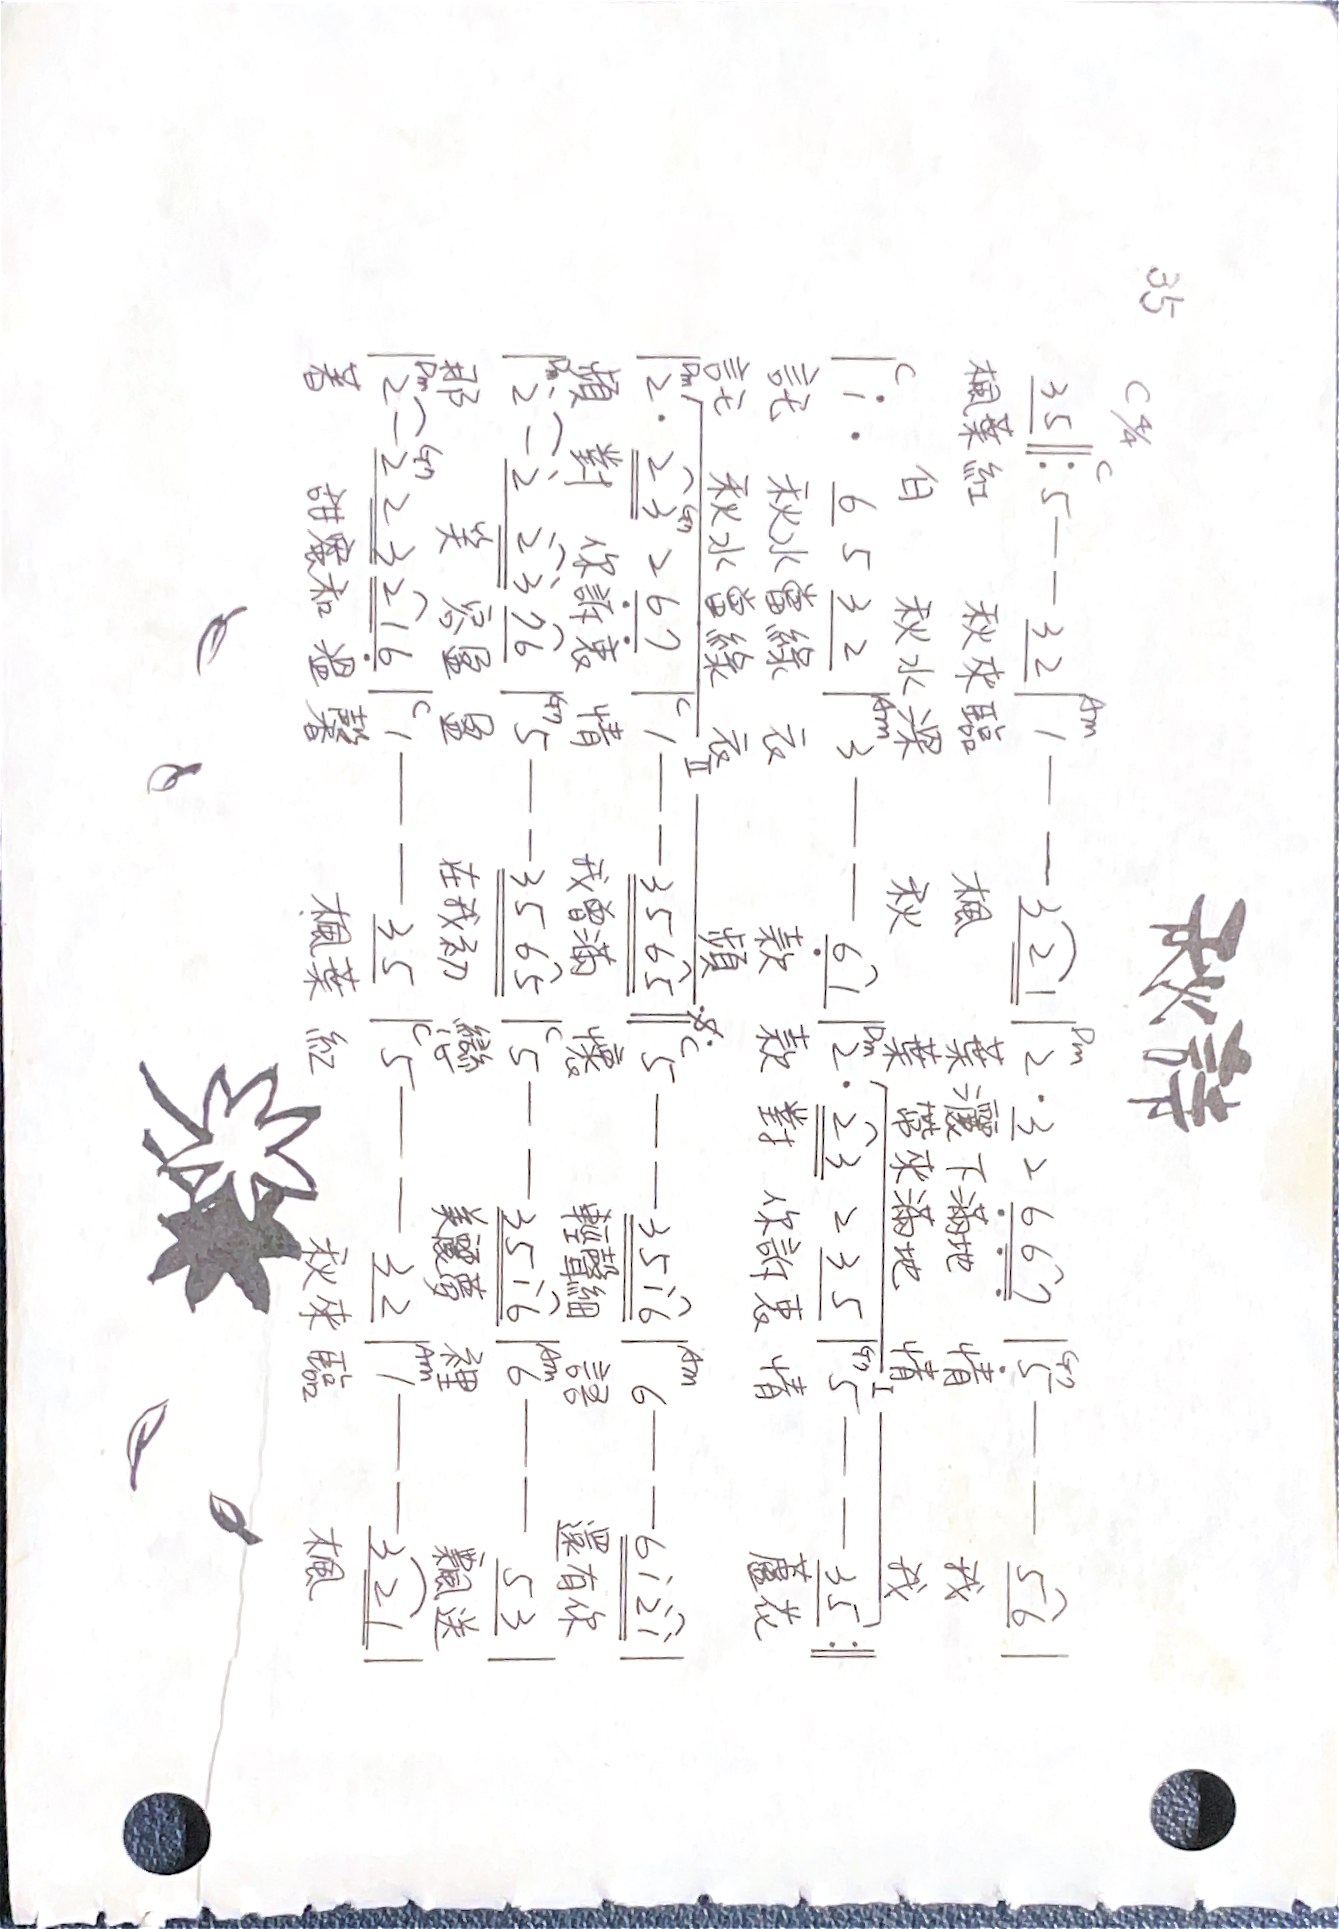 秋詩
35
C 4/4
C Am Dm G7
35 ‖: 5 — — 32 | 1 — — 321 | 2 · 3 2 667 | 5 — — 56 |
楓葉紅 秋來臨 楓 葉灑下滿地 情 我
白 秋水深 秋 葉帶來滿地 情 我
C Am Dm I G7
| i · 6 5 32 | 3 — — 61 | 2 · 23 2 35 | 5 — — 35 :‖
託 秋水當綠 衣 款 款對 你訴衷情 蘆花
託 秋水當綠 衣 頻
Dm G7 C II 𝄋 C Am
| 2 · 23 2 67 | 1 — — 3565 ‖ 5 — — 35i6 | 6 — — 6i2̇i |
頻 對 你訴衷 情 我曾滿 懷 輕聲細 語 還有你
Dm G7 C Am
| 2̇ — 2̇ 2̇3̇ 76 | 5 — — 3565 | 5 — — 35i6 | 6 — — 53 |
那 笑 容盈 盈 在我初 戀 美麗夢 裡 飄送
Dm G7 C C Am
| 2 — 223 216 | 1 — — 35 | 5 — — 32 | 1 — — 321 |
著 甜蜜和 溫 馨 楓葉 紅 秋來 臨 楓